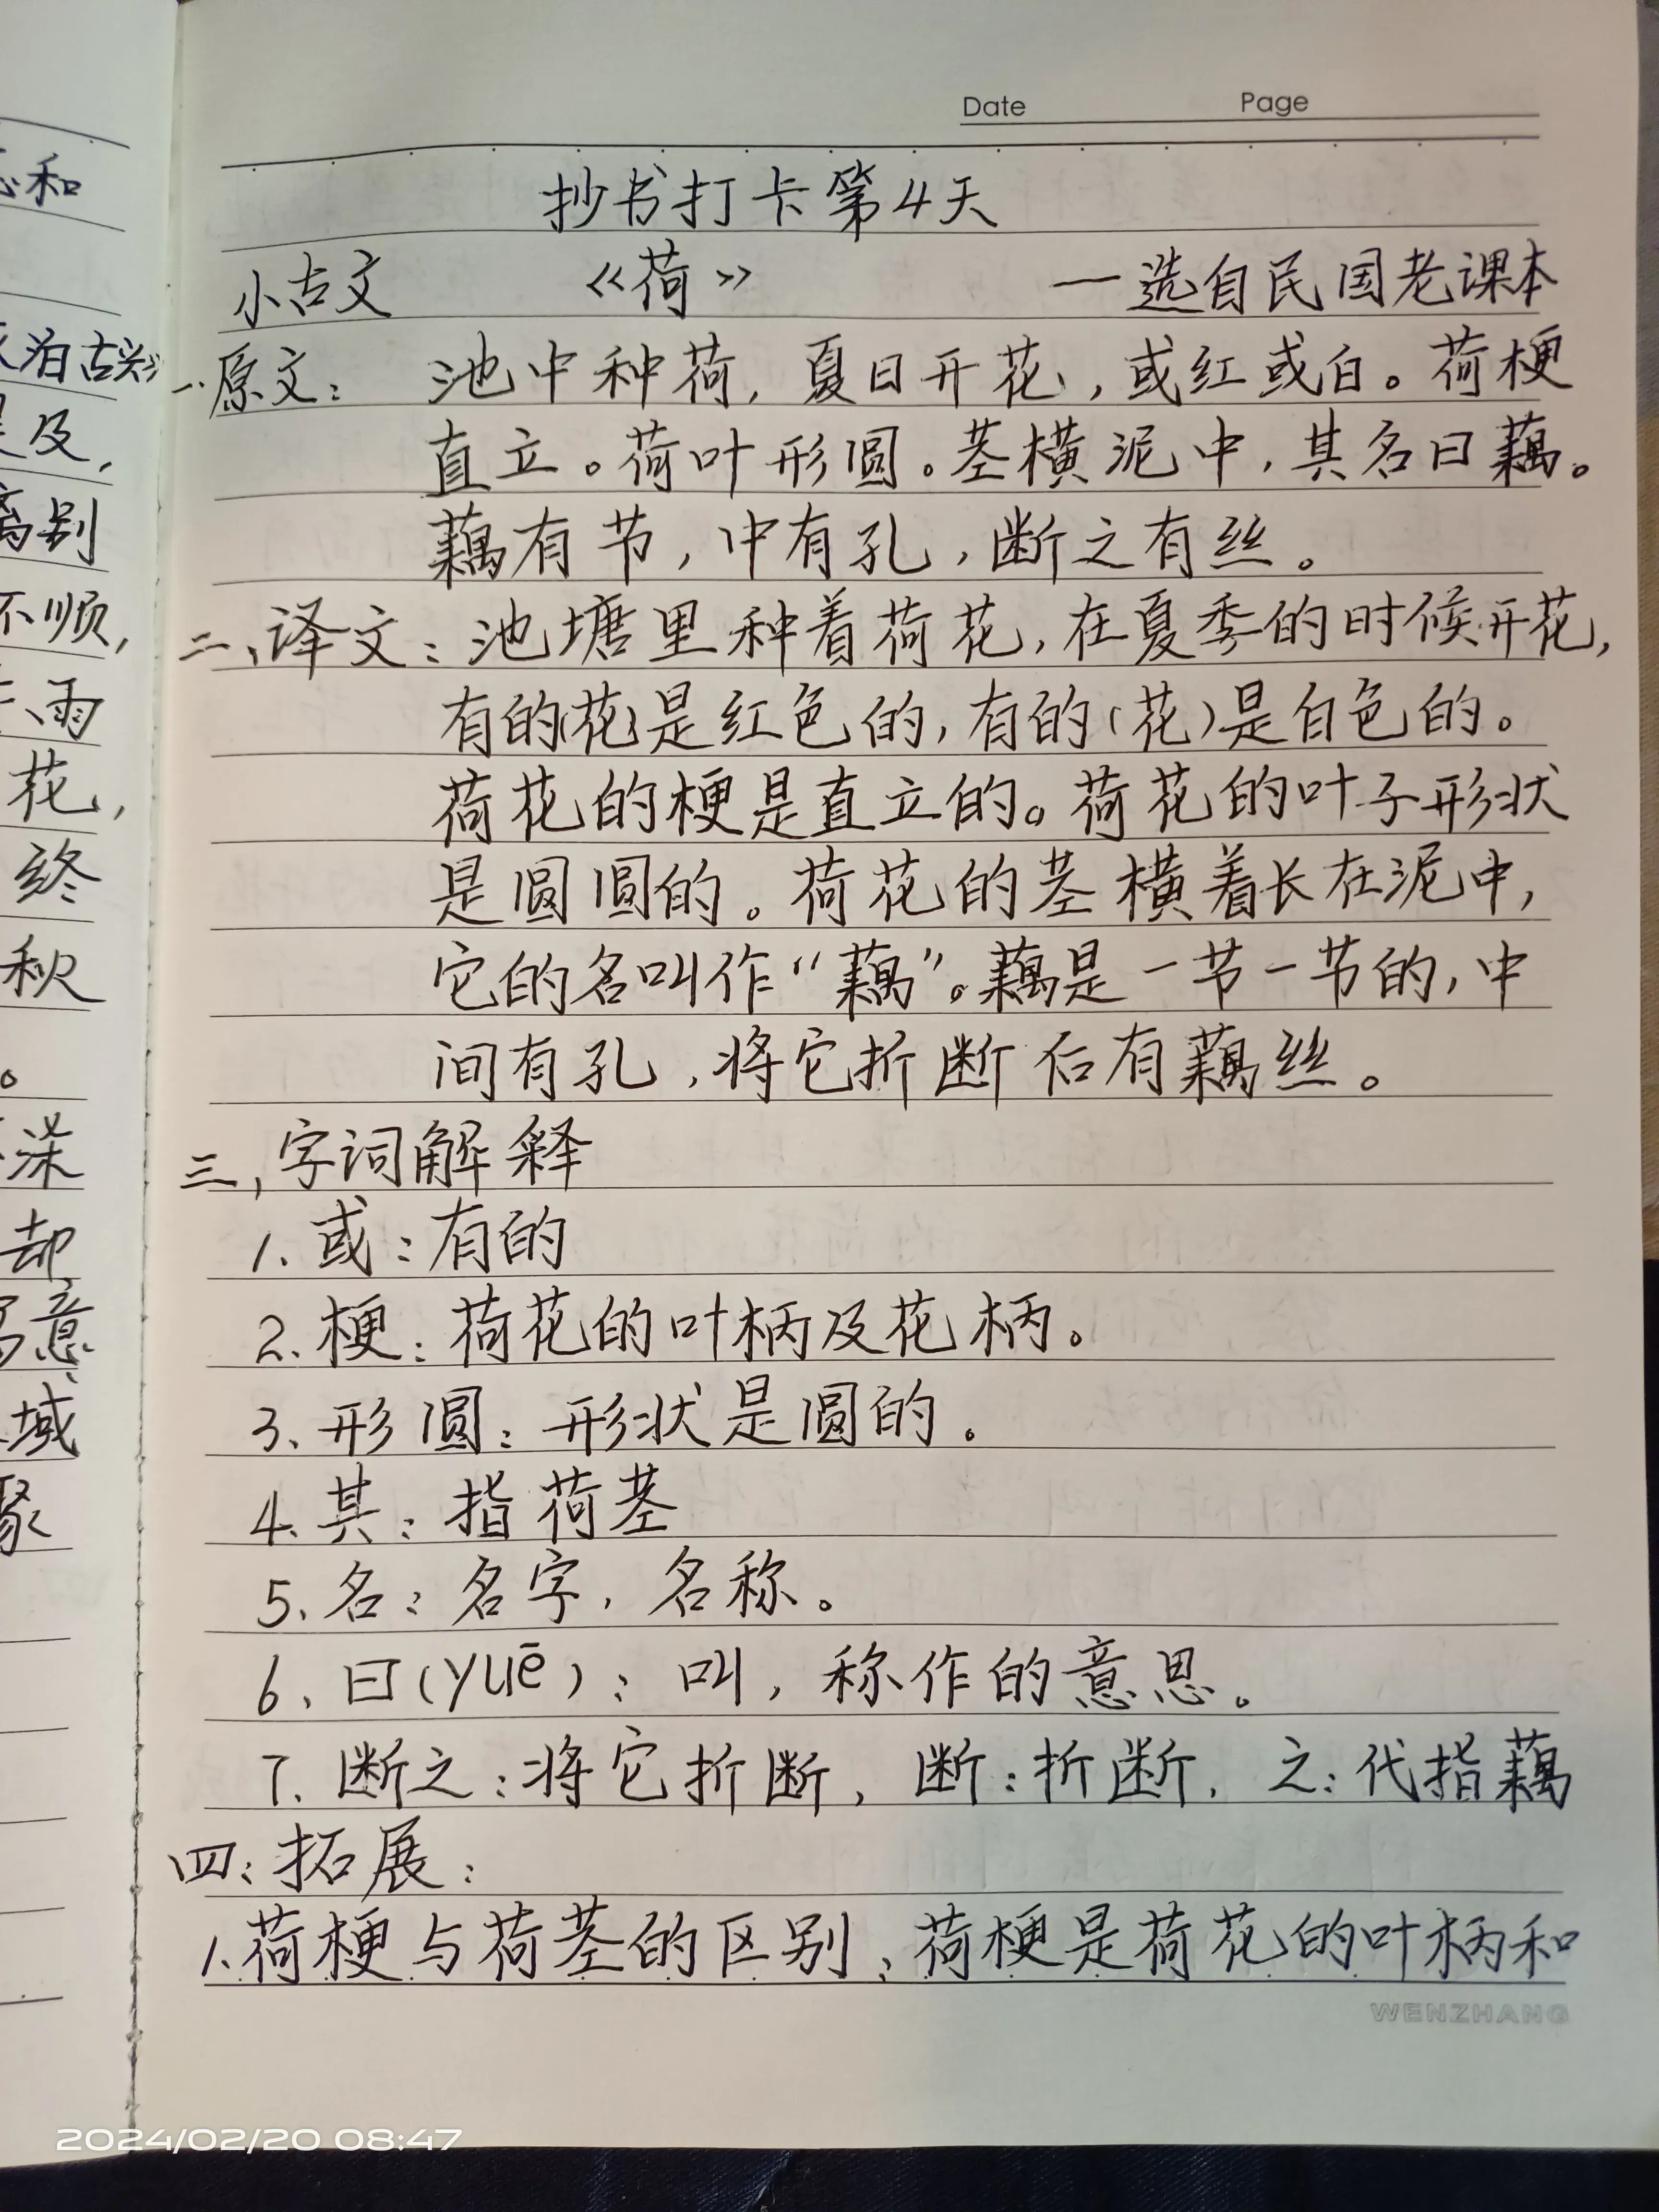 Date Page
抄书打卡第4天
小古文 《荷》 一选自民国老课本
一.原文：池中种荷，夏日开花，或红或白。荷梗
直立。荷叶形圆。茎横泥中，其名曰藕。
藕有节，中有孔，断之有丝。
二、译文：池塘里种着荷花，在夏季的时候开花，
有的(花)是红色的，有的(花)是白色的。
荷花的梗是直立的。荷花的叶子形状
是圆圆的。荷花的茎横着长在泥中，
它的名叫作“藕”。藕是一节一节的，中
间有孔，将它折断后有藕丝。
三，字词解释
1. 或：有的
2. 梗：荷花的叶柄及花柄。
3、形圆：形状是圆的。
4. 其：指荷茎
5、名：名字，名称。
6、曰(yuē)：叫，称作的意思。
7. 断之：将它折断，断：折断，之：代指藕
四：拓展：
1.荷梗与荷茎的区别、荷梗是荷花的叶柄和
WENZHANG
和
泊古
及，
离别
不顺，
、雨
花，
终
秋
。
深
却
意
域
聚
2024/02/20 08:47